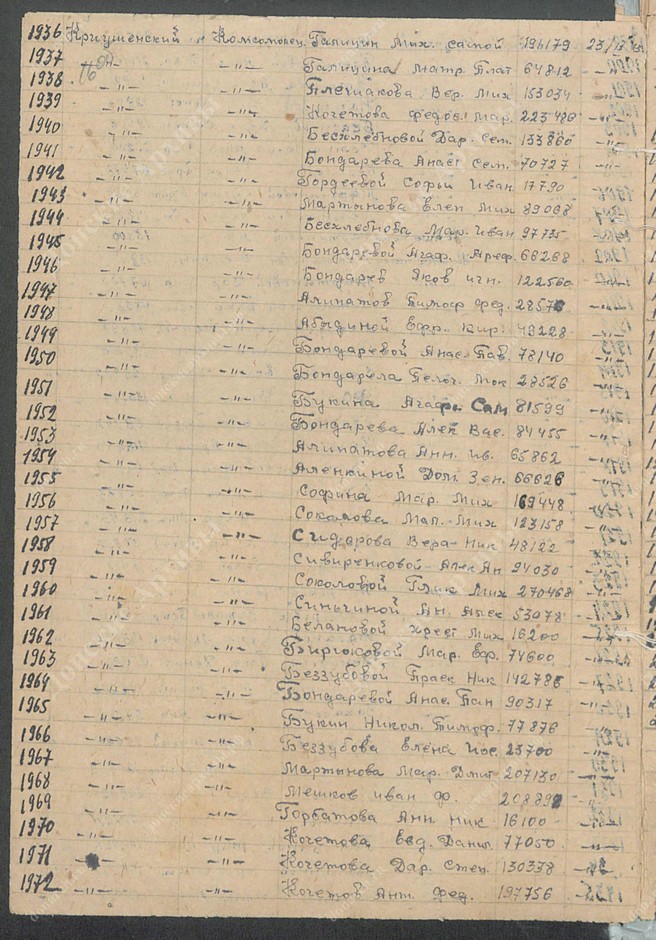 1936 Кriушенский Комсомолец Галицин Мих. самой 196179 23/
1937 —"— Галицина Матр. Плат 64812 —"—
1938 —"— —"— Плешакова Вер. Мих 153034
1939 —"— —"— Кочетова Федос. Мар. 223420
1940 —"— —"— Бесхлебновой Дар. Сем. 133860
1941 —"— —"— Бондарева Анаст Сем. 70727
1942 —"— —"— Гордеевой Софьи Иван 17790
1943 —"— —"— Мартынова Елен Мих 89068
1944 —"— —"— Бесхлебнова Мар. Иван 97735
1945 —"— —"— Бондаревой Агаф. Ареф. 68268
1946 —"— —"— Бондарев Яков Игн. 122560
1947 —"— —"— Алипатов Тимоф Фед. 28576
1948 —"— —"— Абыдиной Ефр. Кир. 49228
1949 —"— —"— Бондаревой Анас. Пав. 78140
1950 —"— —"— Бондарева Пелаг. Мок 28526
1951 —"— —"— Букина Агафь Сам 81599
1952 —"— —"— Бондарева Алек Вас. 84455
1953 —"— —"— Алипатова Анн. Ив. 65862
1954 —"— —"— Аленкиной Дом. Зен. 66626
1955 —"— —"— Софина Мар. Мих 169448
1956 —"— —"— Соколова Мал. Мих 123158
1957 —"— —"— Сидарова Вера Ник 48122
1958 —"— —"— Сивиренковой Алек Ан 94030
1959 —"— —"— Соколовой Глик Мих 270468
1960 —"— —"— Синьчиной Ан. Алек 53078
1961 —"— —"— Белановой Хрест Мих 16200
1962 —"— —"— Бирюковой Мар. Еф. 74600
1963 —"— —"— Беззубовой Праск Ник 142785
1964 —"— —"— Бондаревой Анас. Пан 90317
1965 —"— —"— Букин Никол. Тимоф. 77876
1966 —"— —"— Беззубова Елена Иос 23700
1967 —"— —"— Мартынова Мар. Дмит 207130
1968 —"— —"— Мешков Иван Ф. 208892
1969 —"— —"— Горбатова Анн Ник 16100
1970 —"— —"— Кочетова Евд. Данил. 77050
1971 —"— Кочетова Дар. Степ. 130338
1972 —"— —"— Кочетов Ант. Фед. 197756